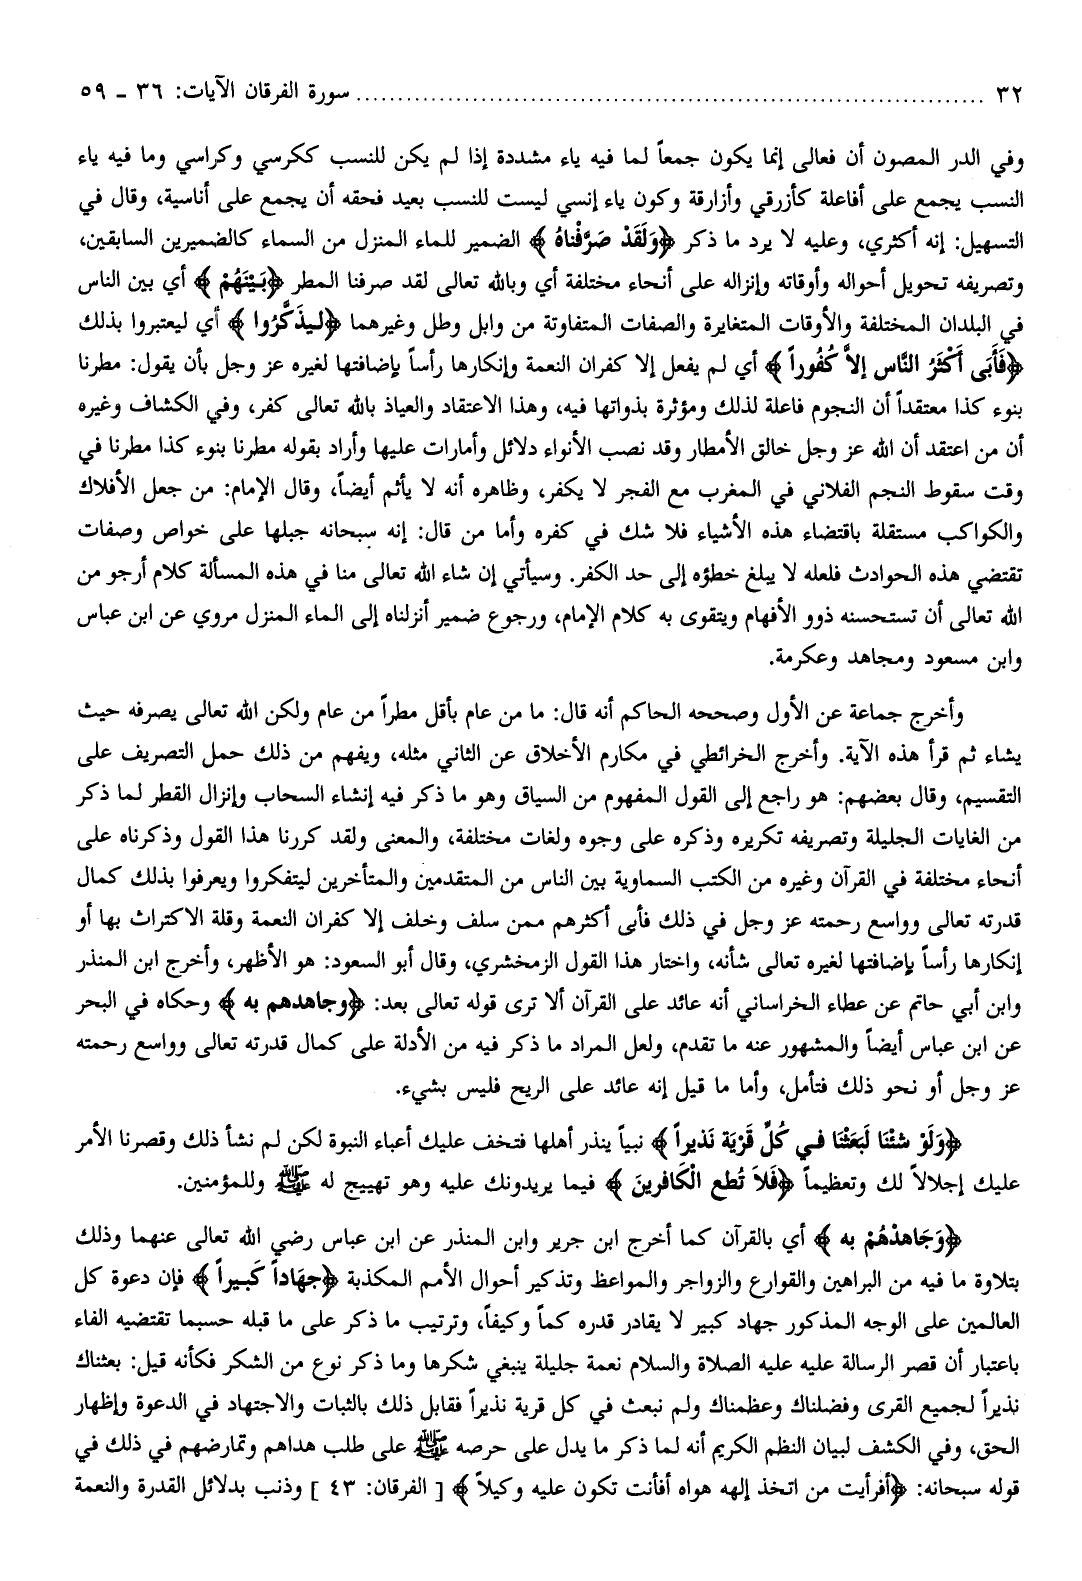 ٣٢ ........................................................................ سورة الفرقان الآيات: ٣٦ ـ ٥٩
وفي الدر المصون أن فعالى إنما يكون جمعاً لما فيه ياء مشددة إذا لم يكن للنسب ككرسي وكراسي وما فيه ياء
النسب يجمع على أفاعلة كأزرقي وأزارقة وكون ياء إنسي ليست للنسب بعيد فحقه أن يجمع على أناسية، وقال في
التسهيل: إنه أكثري، وعليه لا يرد ما ذكر ﴿وَلَقَدْ صَرَّفْناهُ﴾ الضمير للماء المنزل من السماء كالضميرين السابقين،
وتصريفه تحويل أحواله وأوقاته وإنزاله على أنحاء مختلفة أي وبالله تعالى لقد صرفنا المطر ﴿بَيْنَهُمْ﴾ أي بين الناس
في البلدان المختلفة والأوقات المتغايرة والصفات المتفاوتة من وابل وطل وغيرهما ﴿لِيذَكَّرُوا﴾ أي ليعتبروا بذلك
﴿فَأَبَى أَكْثَرُ النَّاسِ إلاَّ كُفُوراً﴾ أي لم يفعل إلا كفران النعمة وإنكارها رأساً بإضافتها لغيره عز وجل بأن يقول: مطرنا
بنوء كذا معتقداً أن النجوم فاعلة لذلك ومؤثرة بذواتها فيه، وهذا الاعتقاد والعياذ بالله تعالى كفر، وفي الكشاف وغيره
أن من اعتقد أن الله عز وجل خالق الأمطار وقد نصب الأنواء دلائل وأمارات عليها وأراد بقوله مطرنا بنوء كذا مطرنا في
وقت سقوط النجم الفلاني في المغرب مع الفجر لا يكفر، وظاهره أنه لا يأثم أيضاً، وقال الإمام: من جعل الأفلاك
والكواكب مستقلة باقتضاء هذه الأشياء فلا شك في كفره وأما من قال: إنه سبحانه جبلها على خواص وصفات
تقتضي هذه الحوادث فلعله لا يبلغ خطؤه إلى حد الكفر. وسيأتي إن شاء الله تعالى منا في هذه المسألة كلام أرجو من
الله تعالى أن تستحسنه ذوو الأفهام ويتقوى به كلام الإمام، ورجوع ضمير أنزلناه إلى الماء المنزل مروي عن ابن عباس
وابن مسعود ومجاهد وعكرمة.
وأخرج جماعة عن الأول وصححه الحاكم أنه قال: ما من عام بأقل مطراً من عام ولكن الله تعالى يصرفه حيث
يشاء ثم قرأ هذه الآية. وأخرج الخرائطي في مكارم الأخلاق عن الثاني مثله، ويفهم من ذلك حمل التصريف على
التقسيم، وقال بعضهم: هو راجع إلى القول المفهوم من السياق وهو ما ذكر فيه إنشاء السحاب وإنزال القطر لما ذكر
من الغايات الجليلة وتصريفه تكريره وذكره على وجوه ولغات مختلفة، والمعنى ولقد كررنا هذا القول وذكرناه على
أنحاء مختلفة في القرآن وغيره من الكتب السماوية بين الناس من المتقدمين والمتأخرين ليتفكروا ويعرفوا بذلك كمال
قدرته تعالى وواسع رحمته عز وجل في ذلك فأبى أكثرهم ممن سلف وخلف إلا كفران النعمة وقلة الاكتراث بها أو
إنكارها رأساً بإضافتها لغيره تعالى شأنه، واختار هذا القول الزمخشري، وقال أبو السعود: هو الأظهر، وأخرج ابن المنذر
وابن أبي حاتم عن عطاء الخراساني أنه عائد على القرآن ألا ترى قوله تعالى بعد: ﴿وجاهدهم به﴾ وحكاه في البحر
عن ابن عباس أيضاً والمشهور عنه ما تقدم، ولعل المراد ما ذكر فيه من الأدلة على كمال قدرته تعالى وواسع رحمته
عز وجل أو نحو ذلك فتأمل، وأما ما قيل إنه عائد على الريح فليس بشيء.
﴿وَلَوْ شئْنَا لَبَعَثْنَا في كُلِّ قَرْيَة نَذيراً﴾ نبياً ينذر أهلها فتخف عليك أعباء النبوة لكن لم نشأ ذلك وقصرنا الأمر
عليك إجلالاً لك وتعظيماً ﴿فَلاَ تُطع الْكَافرينَ﴾ فيما يريدونك عليه وهو تهييج له ﷺ وللمؤمنين.
﴿وَجَاهدْهُمْ به﴾ أي بالقرآن كما أخرج ابن جرير وابن المنذر عن ابن عباس رضي الله تعالى عنهما وذلك
بتلاوة ما فيه من البراهين والقوارع والزواجر والمواعظ وتذكير أحوال الأمم المكذبة ﴿جهَاداً كَبيراً﴾ فإن دعوة كل
العالمين على الوجه المذكور جهاد كبير لا يقادر قدره كماً وكيفاً، وترتيب ما ذكر على ما قبله حسبما تقتضيه الفاء
باعتبار أن قصر الرسالة عليه عليه الصلاة والسلام نعمة جليلة ينبغي شكرها وما ذكر نوع من الشكر فكأنه قيل: بعثناك
نذيراً لجميع القرى وفضلناك وعظمناك ولم نبعث في كل قرية نذيراً فقابل ذلك بالثبات والاجتهاد في الدعوة وإظهار
الحق، وفي الكشف لبيان النظم الكريم أنه لما ذكر ما يدل على حرصه ﷺ على طلب هداهم وتمارضهم في ذلك في
قوله سبحانه: ﴿أفرأيت من اتخذ إلهه هواه أفأنت تكون عليه وكيلاً﴾ [ الفرقان: ٤٣ ] وذنب بدلائل القدرة والنعمة